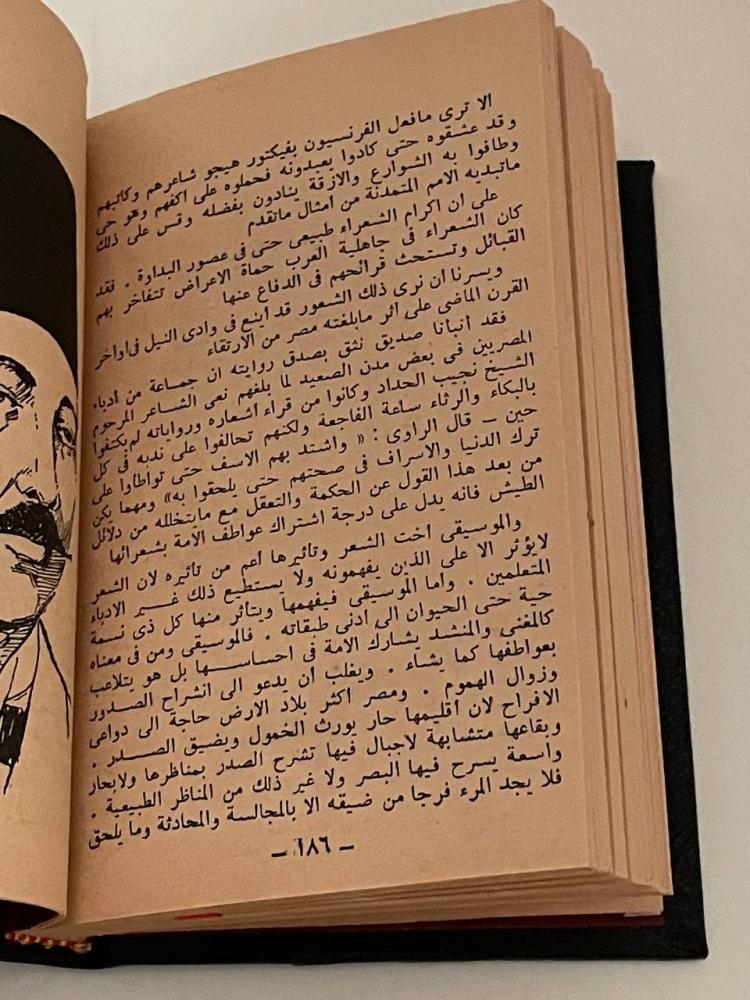 الا ترى مافعل الفرنسيون بفيكتور هيجو شاعرهم وكاتبهم
وقد عشقوه حتى كادوا يعبدونه فحملوه على اكفهم وهو حى
وطافوا به الشوارع والازقة ينادون بفضله وقس على ذلك
ماتبديه الامم المتمدنة من أمثال ماتقدم
على ان اكرام الشعراء طبيعى حتى فى عصور البداوة . فقد
كان الشعراء فى جاهلية العرب حماة الاعراض تتفاخر بهم
القبائل وتستحث قرائحهم فى الدفاع عنها
ويسرنا ان نرى ذلك الشعور قد اينع فى وادى النيل فى اواخر
القرن الماضى على اثر مابلغته مصر من الارتقاء
فقد أنبأنا صديق نثق بصدق روايته ان جماعة من أدباء
المصريين فى بعض مدن الصعيد لما بلغهم نعى الشاعر المرحوم
الشيخ نجيب الحداد وكانوا من قراء اشعاره ورواياته لم يكتفوا
بالبكاء والرثاء ساعة الفاجعة ولكنهم تحالفوا على ندبه فى كل
حين – قال الراوى : « واشتد بهم الاسف حتى تواطاوا على
ترك الدنيا والاسراف فى صحتهم حتى يلحقوا به» ومهما يكن
من بعد هذا القول عن الحكمة والتعقل مع مايتخلله من دلائل
الطيش فانه يدل على درجة اشتراك عواطف الامة بشعرائها
والموسيقى أخت الشعر وتأثيرها أعم من تأثيره لان الشعر
لايؤثر الا على الذين يفهمونه ولا يستطيع ذلك غير الادباء
المتعلمين . وأما الموسيقى فيفهمها ويتأثر منها كل ذى نسمة
حية حتى الحيوان الى ادنى طبقاته . فالموسيقى ومن فى معناه
كالمغنى والمنشد يشارك الامة فى احساسها بل هو يتلاعب
بعواطفها كما يشاء . ويغلب أن يدعو الى انشراح الصدور
وزوال الهموم . ومصر اكثر بلاد الارض حاجة الى دواعى
الافراح لان اقليمها حار يورث الخمول ويضيق الصدر .
وبقاعها متشابهة لاجبال فيها تشرح الصدر بمناظرها ولابحار
واسعة يسرح فيها البصر ولا غير ذلك من المناظر الطبيعية .
فلا يجد المرء فرجا من ضيقه الا بالمجالسة والمحادثة وما يلحق
– ١٨٦ –